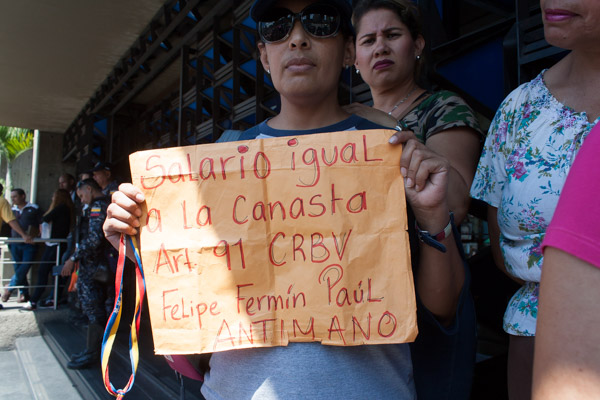 Salario igual
a La Canasta
Art. 91 CRBV
Felipe Fermín Paúl
ANTIMANO